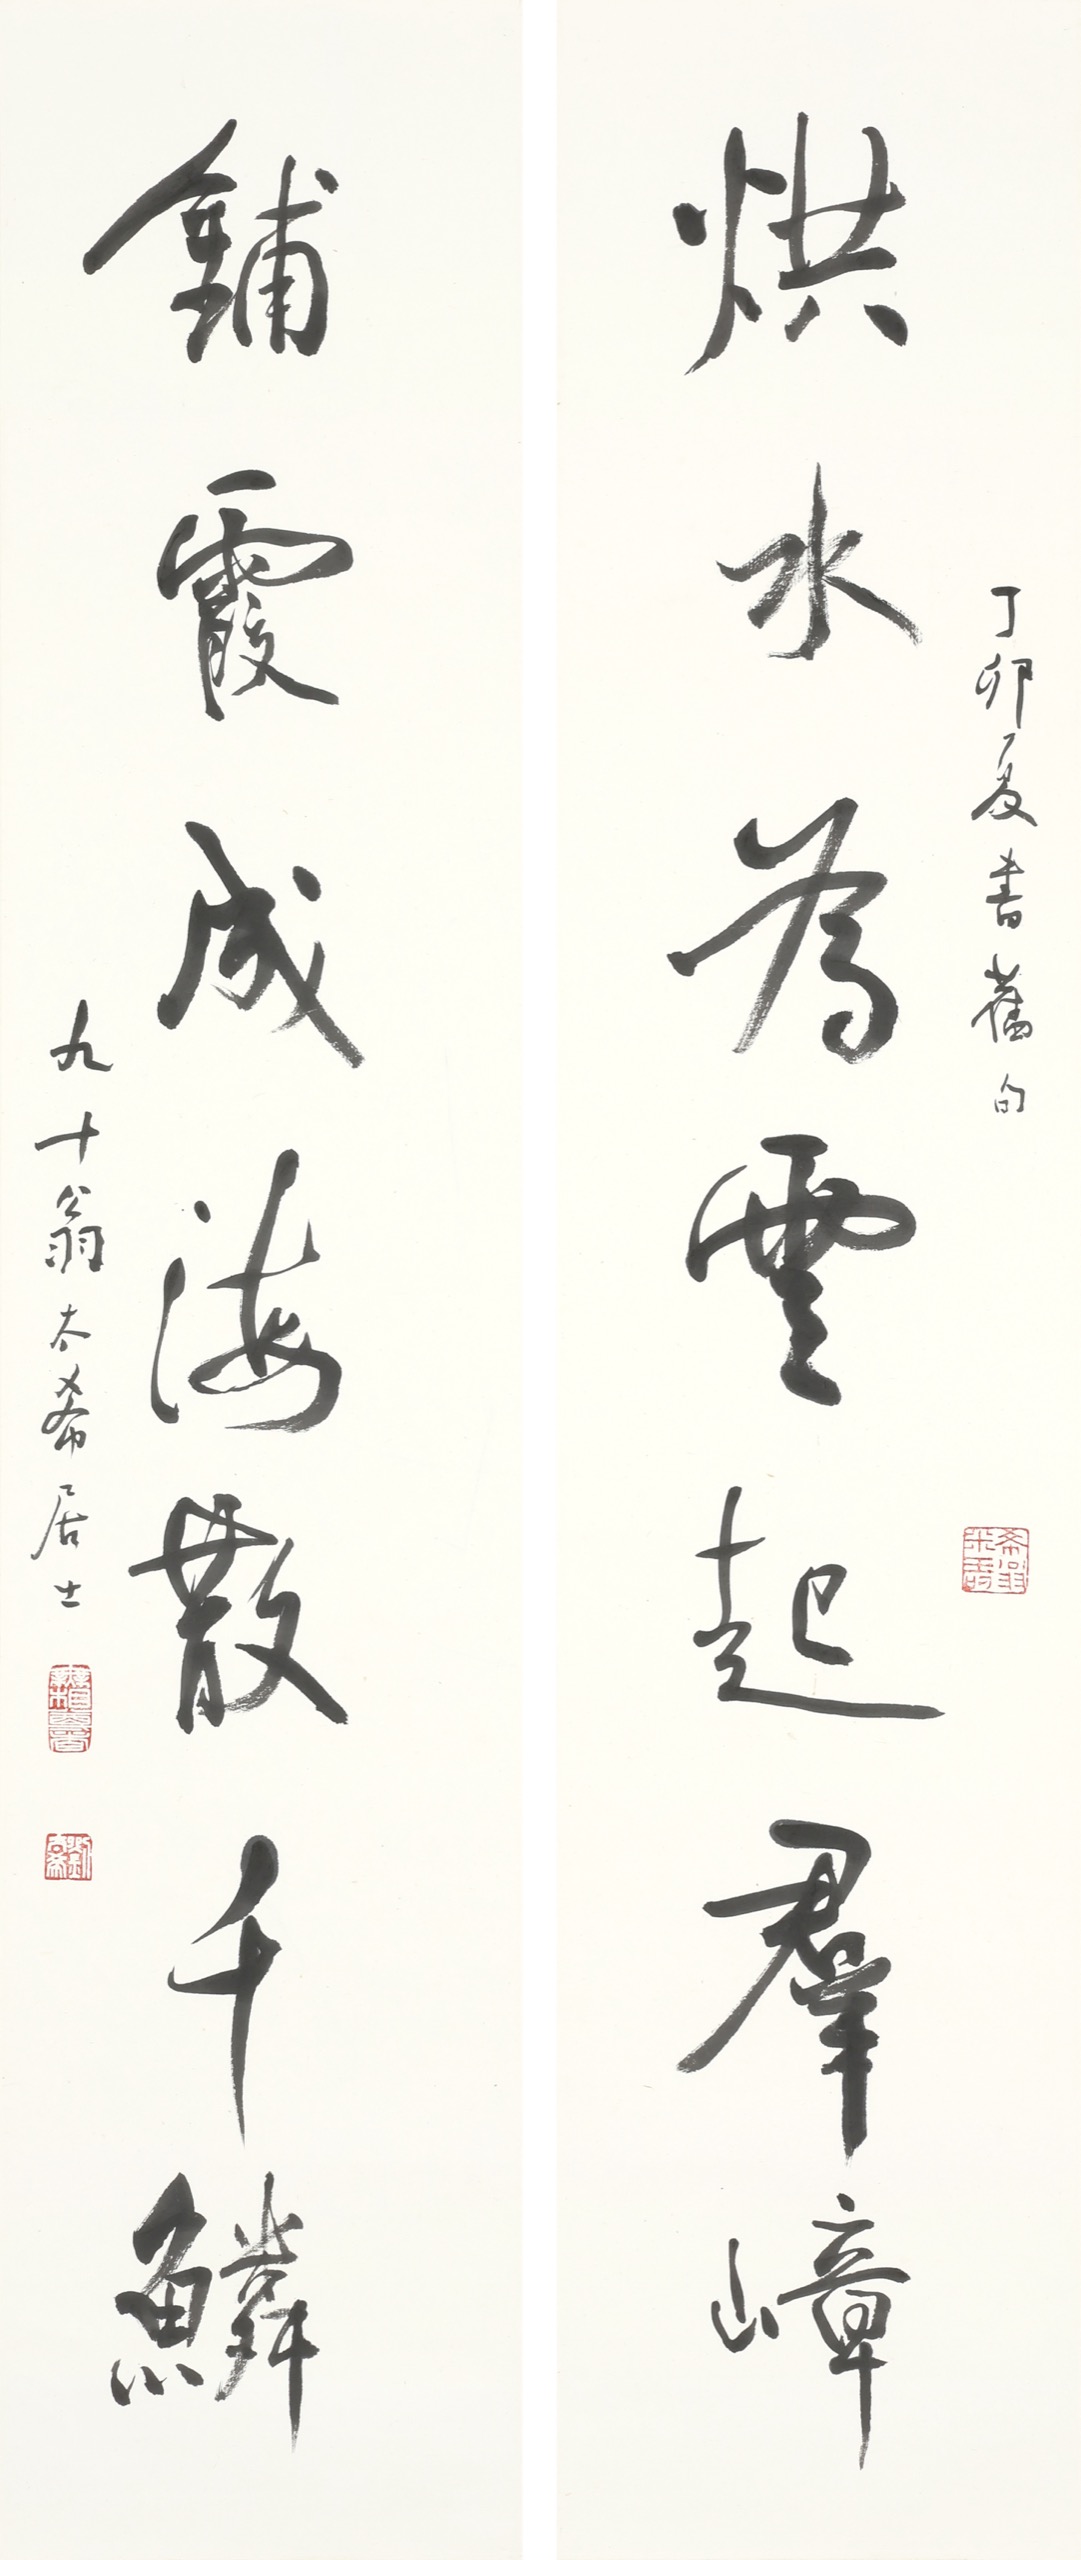 丁卯夏書舊句
烘水為雲起羣嶂
鋪霞成海散千鱗
九十翁太希居士